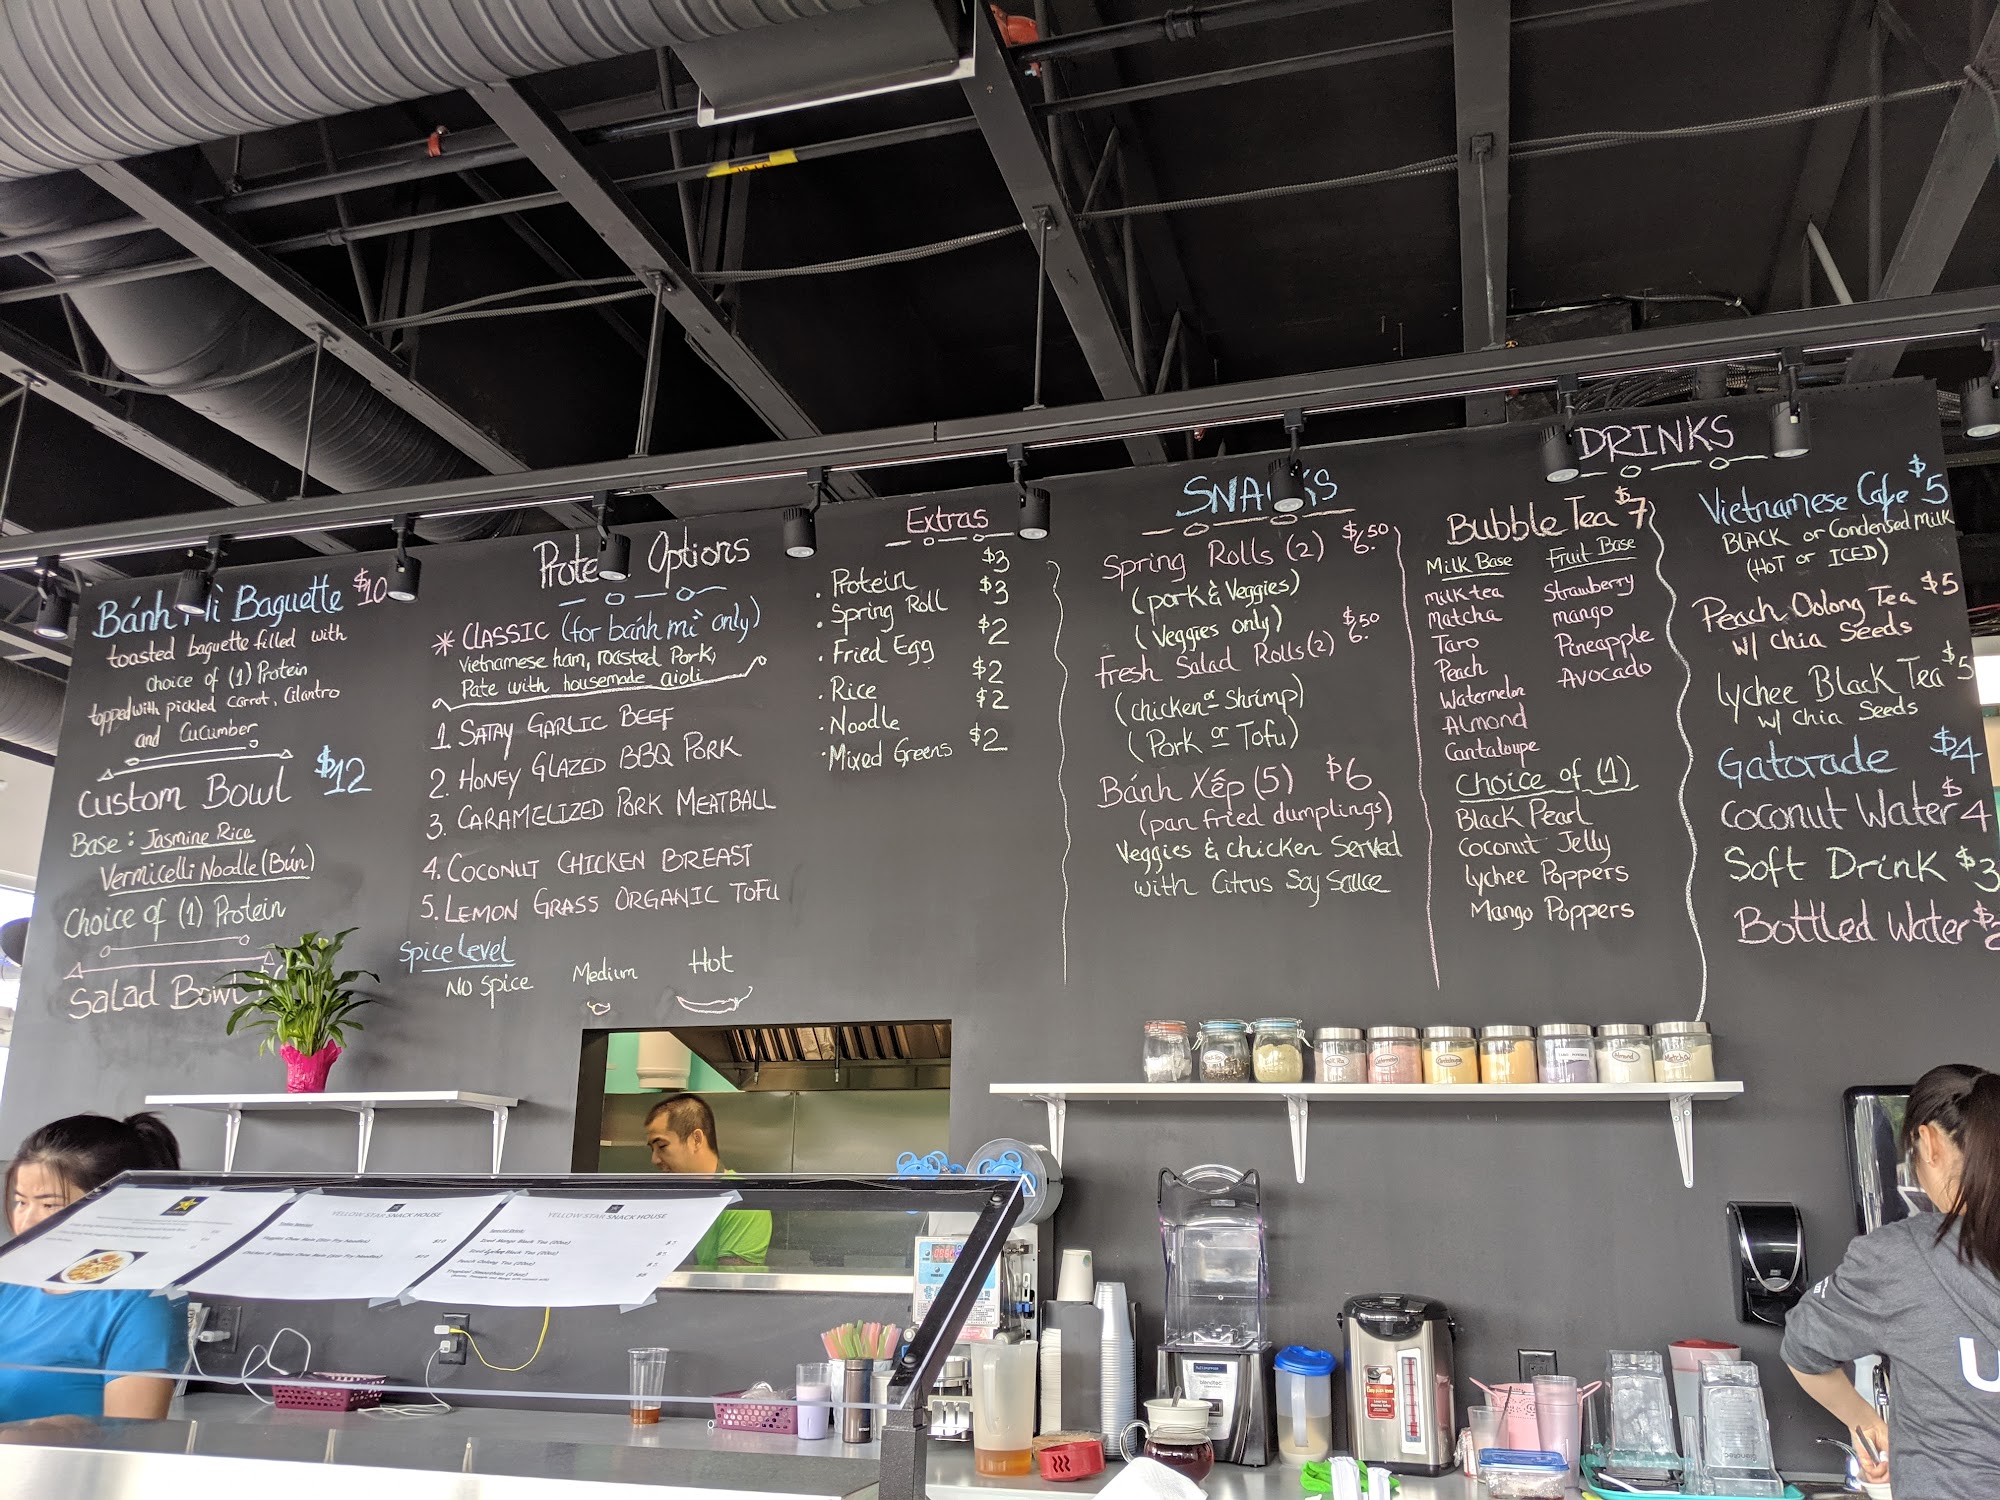 Bánh Mì Baguette $10
toasted baguette filled with
choice of (1) Protein
topped with pickled carrot, Cilantro
and Cucumber
Custom Bowl $12
Base: Jasmine Rice
Vermicelli Noodle (Bún)
Choice of (1) Protein
Salad Bowl
Options
* CLASSIC (for bánh mì only)
Vietnamese ham, roasted Pork,
Pate with housemade aioli
1. SATAY GARLIC BEEF
2. HONEY GLAZED BBQ PORK
3. CARAMELIZED PORK MEATBALL
4. COCONUT CHICKEN BREAST
5. LEMON GRASS ORGANIC TOFU
Spice Level
No Spice Medium Hot
Extras
. Protein $3
. Spring Roll $3
. Fried Egg $2
. Rice $2
. Noodle $2
. Mixed Greens $2
SNACKS
Spring Rolls (2) $6.50
(pork & Veggies)
(Veggies only)
Fresh Salad Rolls (2) $6.50
(chicken or Shrimp)
(Pork or Tofu)
Bánh Xếp (5) $6
(pan fried dumplings)
Veggies & chicken Served
with Citrus Soy Sauce
DRINKS
Bubble Tea $7
Milk Base
milk tea
Matcha
Taro
Peach
Watermelon
Almond
Cantaloupe
Fruit Base
Strawberry
mango
Pineapple
Avocado
Choice of (1)
Black Pearl
Coconut Jelly
Lychee Poppers
Mango Poppers
Vietnamese Cafe $5
BLACK or Condensed Milk
(HOT or ICED)
Peach Oolong Tea $5
w/ Chia Seeds
Lychee Black Tea $5
w/ Chia Seeds
Gatorade $4
Coconut Water $4
Soft Drink $3
Bottled Water $2
YELLOW STAR SNACK HOUSE
YELLOW STAR SNACK HOUSE
Special Drink:
Iced Mango Black Tea (20oz)
Iced Lychee Black Tea (20oz)
Peach Oolong Tea (20oz)
Almond
Matcha
blendtec
U